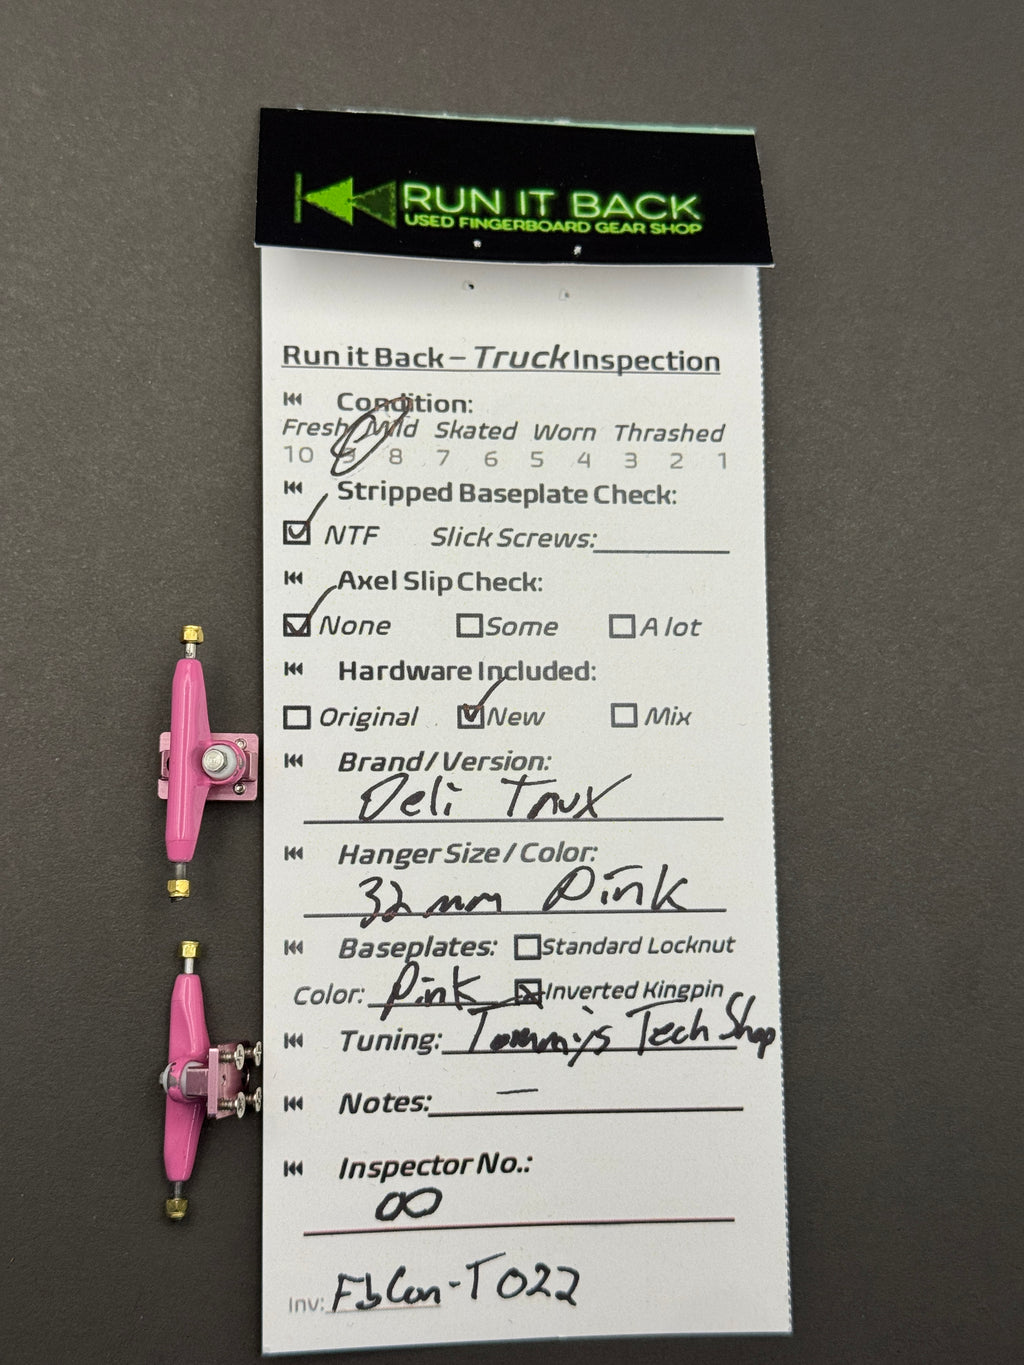 RUN IT BACK
USED FINGERBOARD GEAR SHOP
Run it Back – Truck Inspection
Condition:
Fresh Mild Skated Worn Thrashed
10 9 8 7 6 5 4 3 2 1
Stripped Baseplate Check:
NTF Slick Screws:
Axel Slip Check:
None Some A lot
Hardware Included:
Original New Mix
Brand/Version:
Deli Trux
Hanger Size / Color:
32mm Pink
Baseplates: Standard Locknut
Color: Pink Inverted Kingpin
Tuning: Tommy's Tech Shop
Notes: —
Inspector No.:
00
Inv: FbCon-T022